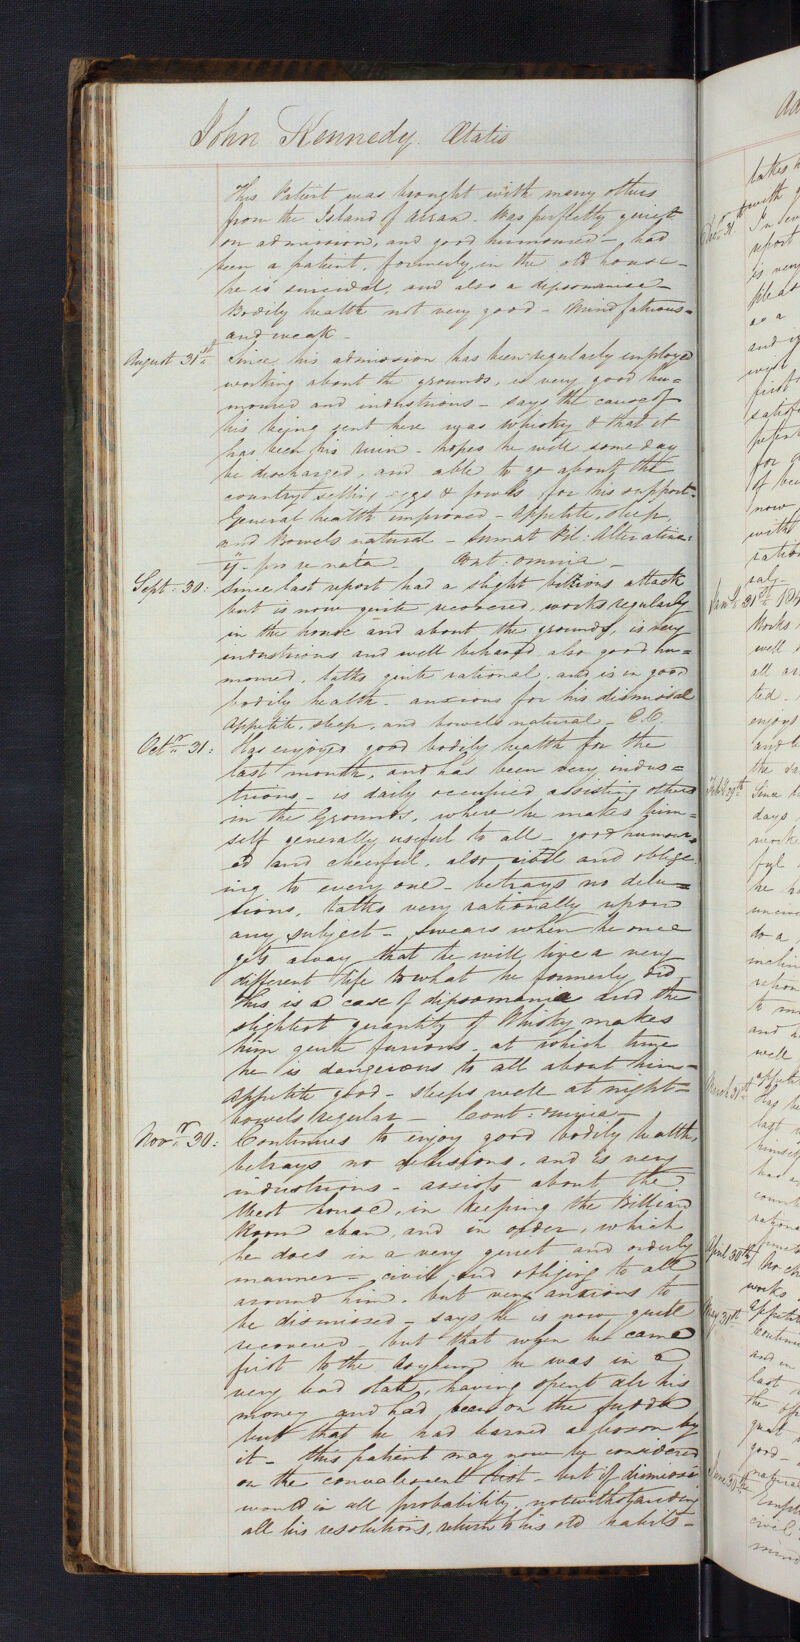 John Kennedy. Ætatis
This Patient was brought with many others
from the Island of Arran. Was perfectly quiet
on admission, and good humoured – had
been a patient, formerly in the old house –
he is suicidal, and also a dipsomaniac –
Bodily health not very good – Mind fatuous –
and weak –
August 31st Since his admission has been regularly employed
working about the grounds, is very good hu=
moured and industrious – says the cause of
his being sent here was Whisky & that it
has been his ruin – hopes he will some day
be discharged, and able to go about the
country selling eggs & fowls for his support –
General health improved – Appetite, sleep,
and Bowels natural – Sumat Pil: Alterativa:
ij – pro re nata – Cont: omnia –
Sept: 30: Since last report had a slight bilious attack
but is now quite recovered, works regularly
in the house and about the grounds, is very
industrious and well behaved also good hu=
moured, talks quite rational, and is in good
bodily health – anxious for his dismissal
Appetite, sleep, and bowels natural – C.O.
Octr 31: Has enjoyed good bodily health for the
last month, and has been very indus=
trious – is daily occupied assisting others
in the Grounds, where he makes him=
self generally useful to all – good humour=
ed and cheerful, also civil and oblige=
ing to every one – betrays no delu=
sions, talks very rationally upon
any subject – Swears when he once
gets away that he will live a very
different life to what he formerly did
This is a case of dipsomania and the
slightest quantity of Whisky makes
him quite furious, at which time
he is dangerous to all about him –
Appetite good – sleeps well at night –
bowels regular – Cont: omnia –
Novr 30: Continues to enjoy good bodily health,
betrays no delusions, and is very
industrious – assists about the
West house, in keeping the Billiard
Room clean, and in order, which
he does in a very quiet and orderly
manner – civil and obliging to all
around him, but very anxious to
be dismissed – says he is now quite
recovered – but that when he came
first to the Asylum he was in a
very bad state, having spent all his
money and had been on the fuddle
but that he had learned a lesson by
it – this patient may now be considered
on the convalescent list – but if dismissed
would in all probability, notwithstanding
all his resolutions, return to his old habits –
takes
with
Decr 31st In
report
is very
as a
and
with
first
for
of
now
with
Jany 31st
Works
well
all
enjoys
and
the
Feby 29th Since
days
he
do a
to
and
well
March 31st Has
last
himself
had
April 30th No
works
May 31st appetite
and in
last
the
good –
natural
June 30th
civil